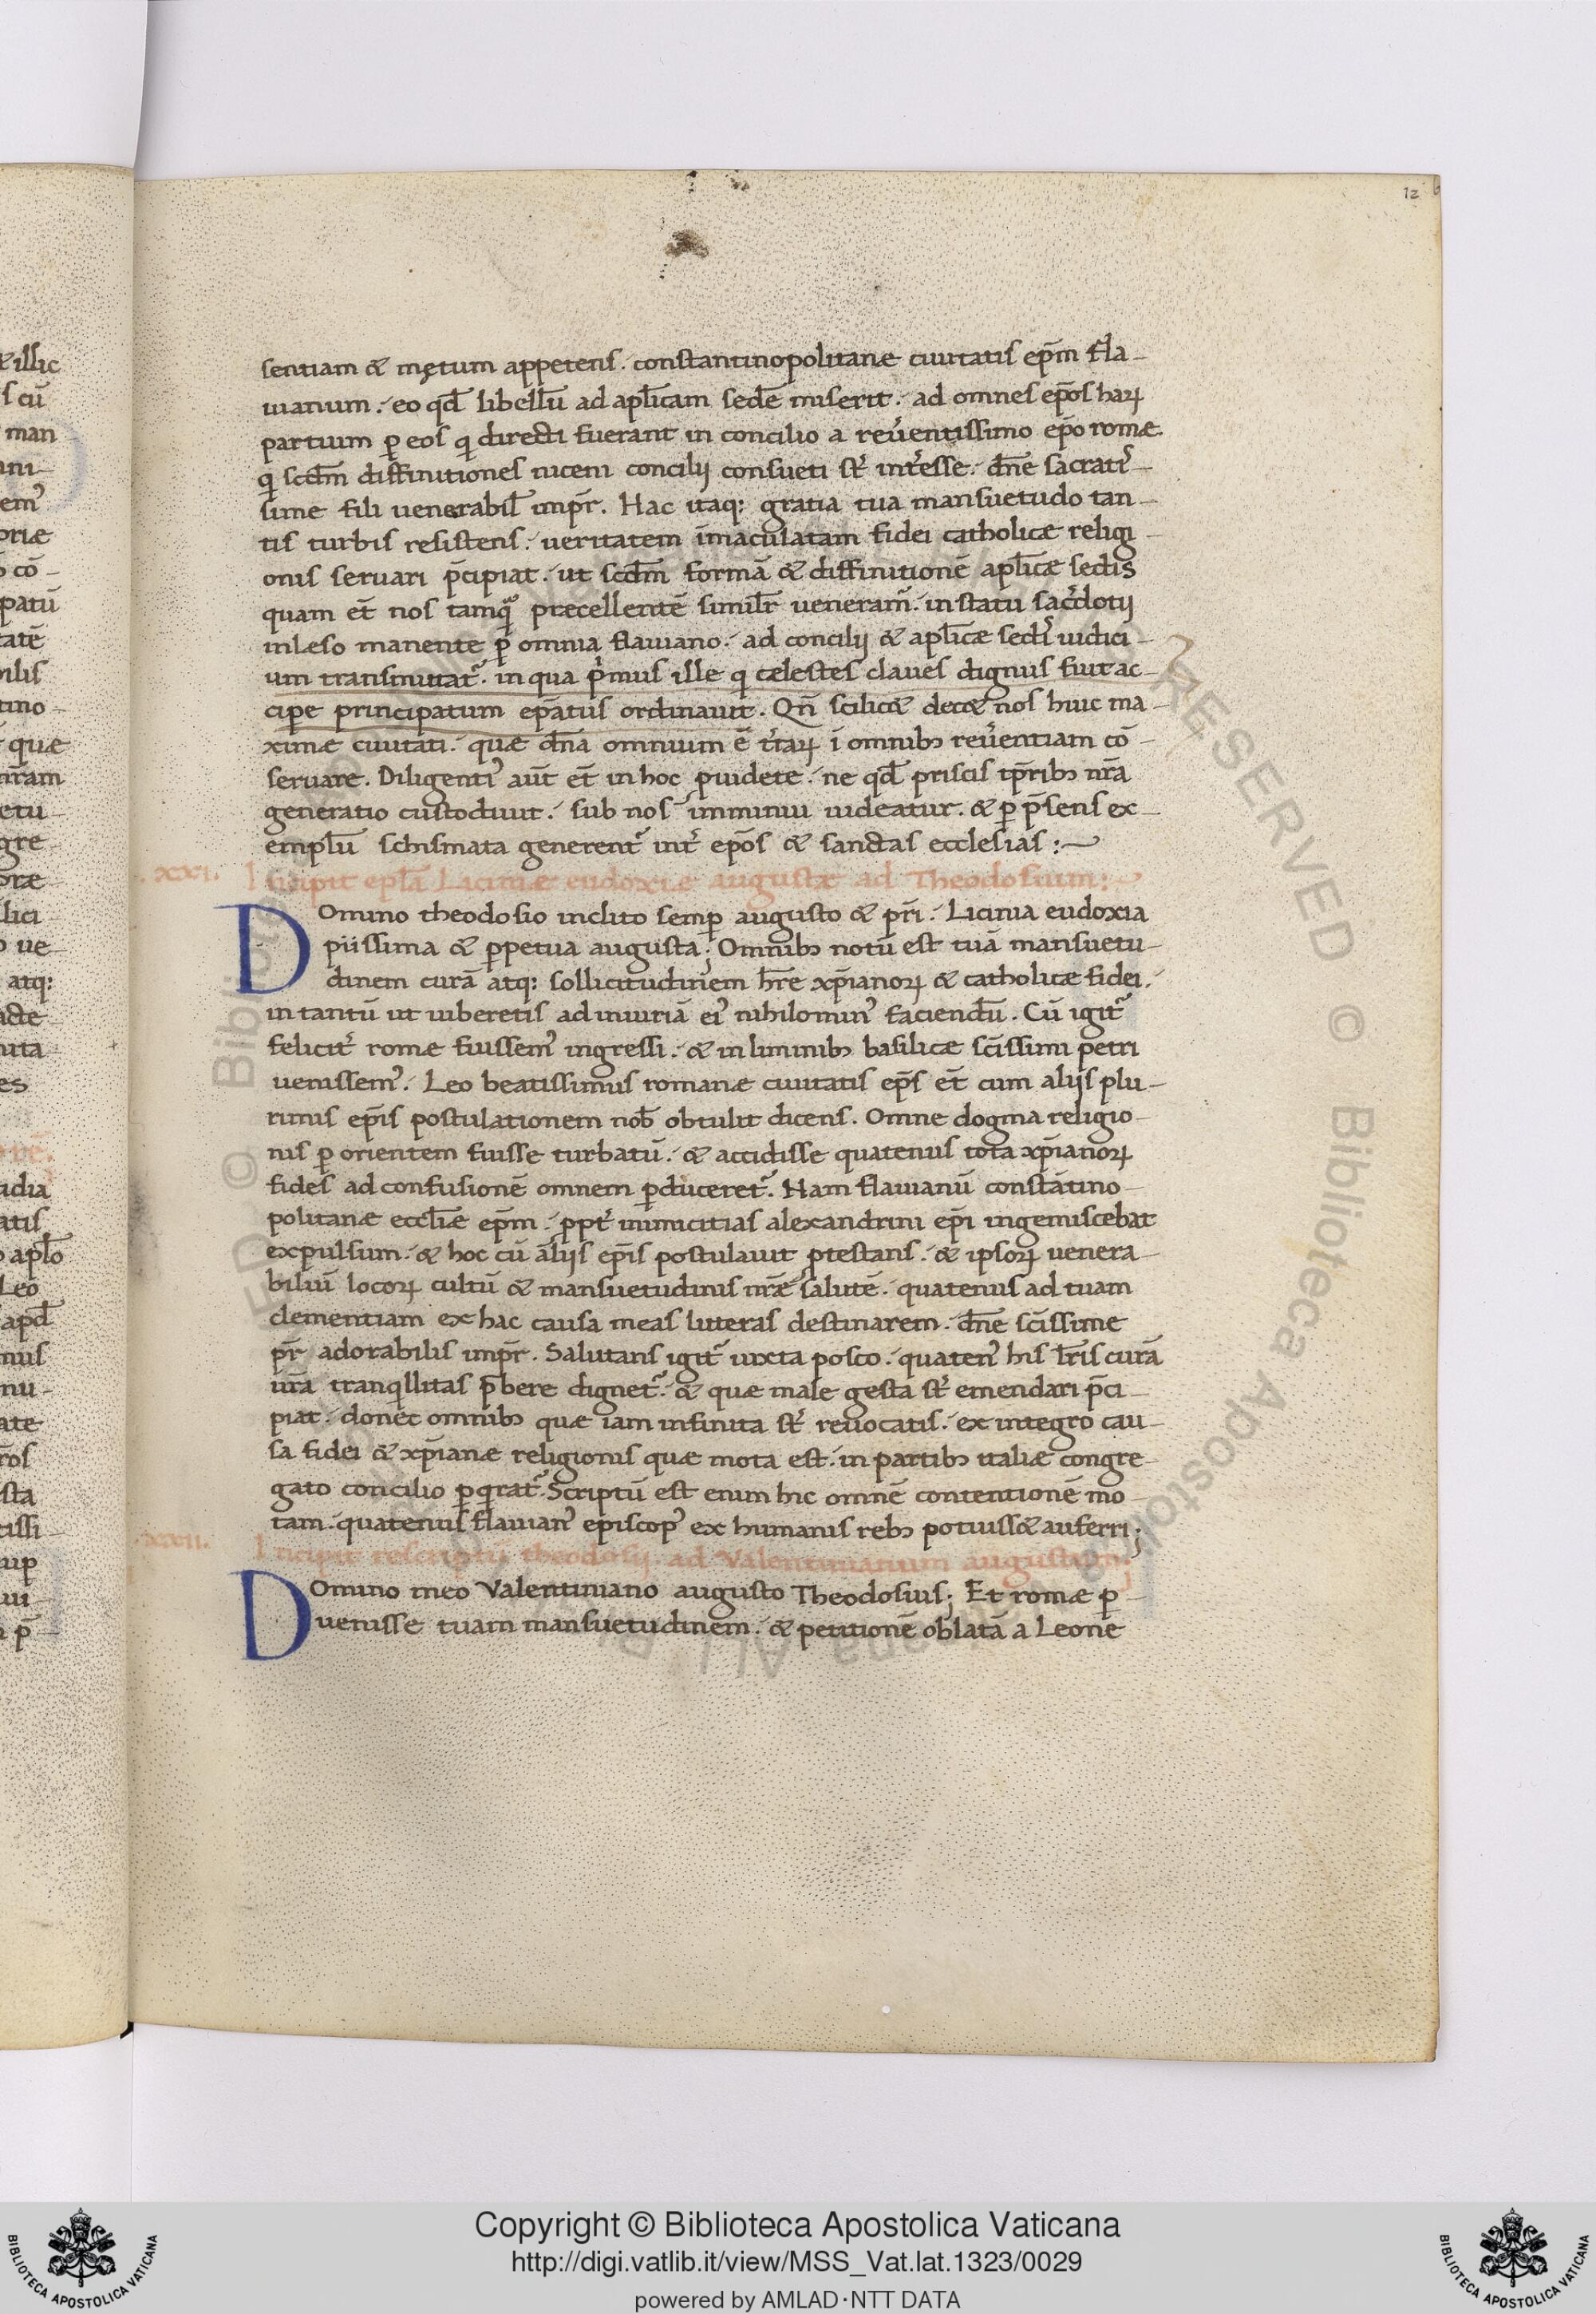 12
sentiam & mętum appetens. constantinopolitanæ ciuitatis ep̄m fla-
uianum. eo qd̄ libellū ad apl̄icam sedē miserit. ad omnes ep̄os haꝝ
partium ꝑ eos qi directi fuerant in concilio a reu̓entissimo ep̄o romæ
qi scd̄m diffinitiones niceni concilij consueti st̄ int̓esse. dn̄e sacrati-
sime fili uenerabil̄ imp̄r. Hac itaq: gratia tua mansuetudo tan-
tis turbis resistens. ueritatem īmaculatam fidei catholicæ religi-
onis seruari p̄cipiat. ut scd̄m formā & diffinitionē apl̄icæ sedis
quam et̄ nos tamqͣ præcellentē simil̄r ueneram᷒. in statū sac̓dotij
inleso manente ꝑ omnia flauiano. ad concilij & apl̄icæ sedis iudici-
um transmittat᷒. in qua p̓mus ille qi celestes claues dignus fuit ac-
cipe principatum ep̄atus ordinauit. Qn̄ scilic& dec& nos huic ma-
ximæ ciuitati. quæ dn̄a omnium ē t̓raꝝ ī omnibꝫ reu̓entiam cō-
seruare. Diligenti᷒ aut̄ et̄ in hoc ꝓuidete. ne qd̄ priscis tp̄ribꝫ nr̄a
generatio custodiuit. sub nos imminui uideatur. & ꝑ p̄sens ex-
emplū schismata generent᷒ int̓ ep̄os & sanctas ecclesias:
.xxi. Incipit epl̄a Liciniæ eudoxiæ augustæ ad Theodosium:
Domino theodosio inclito semꝑ augusto & pr̄i. Licinia eudoxia
piissima & ꝑpetua augusta; Omnibꝫ notū est tuā mansuetu-
dinem curā atq: sollicitudinem hr̄e xp̄ianoꝝ & catholicæ fidei.
in tantū ut iuberetis ad iniuriā ei᷒ nihilomin᷒ faciendū. Cū igit᷒
felicit̓ romæ fuissem᷒ ingressi. & in liminibꝫ basilicæ sc̄issimi petri
uenissem᷒. Leo beatissimus romanæ ciuitatis ep̄s et̄ cum alijs plu-
rimis ep̄is postulationem nob̄ obtulit dicens. Omne dogma religio-
nis ꝑ orientem fuisse turbatū. & accidisse quatenus tota xp̄ianoꝝ
fides ad confusionē omnem ꝑduceret᷒. Nam flauianū constātino-
politanæ eccl̄iæ ep̄m. ꝓpt̓ inimicitias alexandrini ep̄i ingemiscebat
expulsum. & hoc cū alijs ep̄is postulauit ꝓtestans. & ipsoꝝ uenera-
biliū locoꝝ cultū & mansuetudinis nr̄æ salutē. quatenus ad tuam
clementiam ex hac causa meas litteras destinarem. dn̄e sc̄issime
pr̄ adorabilis imp̄r. Salutans igit᷒ iuxta posco. quaten᷒ his lr̄is curā
ur̄a tranqillitas p̄bere dignet᷒. & quæ male gesta st̄ emendari p̄ci-
piat. donec omnibꝫ quæ iam infinita st̄ reuocatis. ex integro cau-
sa fidei & xp̄ianæ religionis quæ mota est. in partibꝫ italiæ congre-
gato concilio ꝑqirat᷒. Scriptū est enim hic omnē contentionē mo-
tam. quatenus flauian᷒ episcop᷒ ex humanis rebꝫ potuiss& auferri;
.xxii. Incipit rescriptū theodosij. ad Valentinianum augustum;
Domino meo Valentiniano augusto Theodosius; Et romæ ꝑ-
uenisse tuam mansuetudinem. & petitionē oblatā a Leone
Copyright © Biblioteca Apostolica Vaticana
http://digi.vatlib.it/view/MSS_Vat.lat.1323/0029
powered by AMLAD·NTT DATA